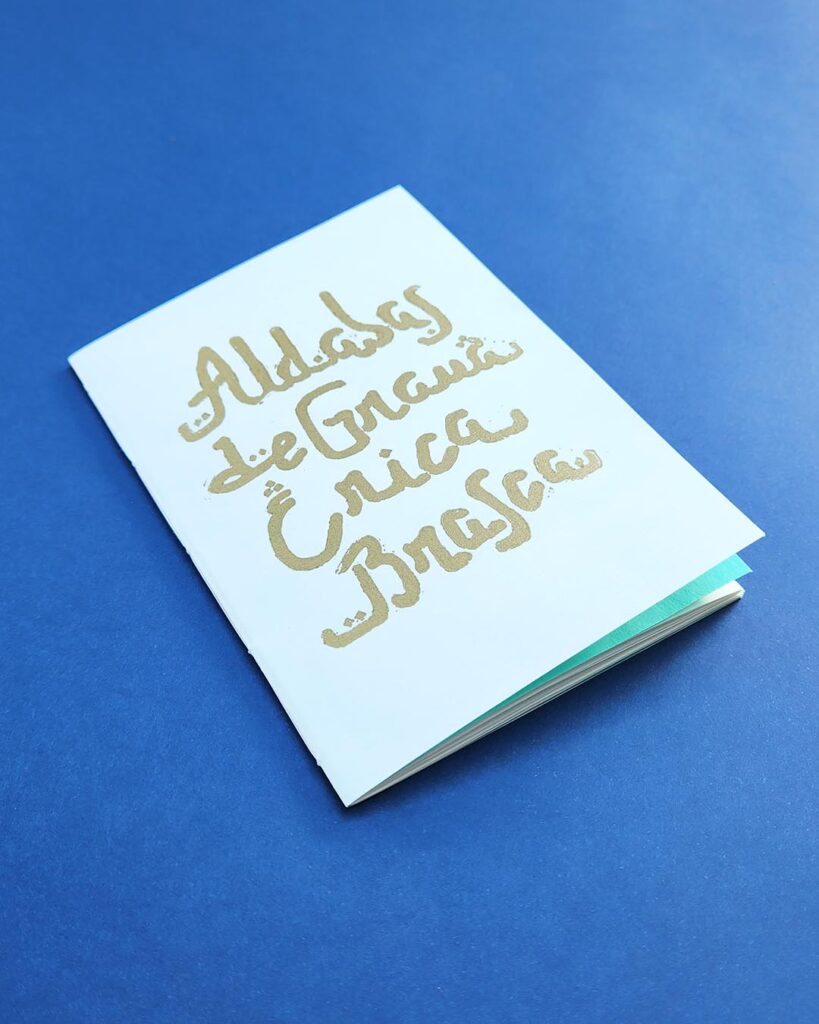 Aldabas
de Graná
Érica
Brasca